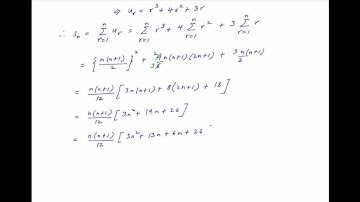 ⇒ u_r = r³ + 4r² + 3r
∴ S_n = Σ_{r=1}^{n} u_r = Σ_{r=1}^{n} r³ + 4 Σ_{r=1}^{n} r² + 3 Σ_{r=1}^{n} r
= {n(n+1)/2}² + n(n+1)(2n+1) + 3n(n+1)/2
= n(n+1)/12 [3n(n+1) + 8(2n+1) + 18]
= n(n+1)/12 [3n² + 19n + 26]
= n(n+1)/12 [3n² + 13n + 6n + 26